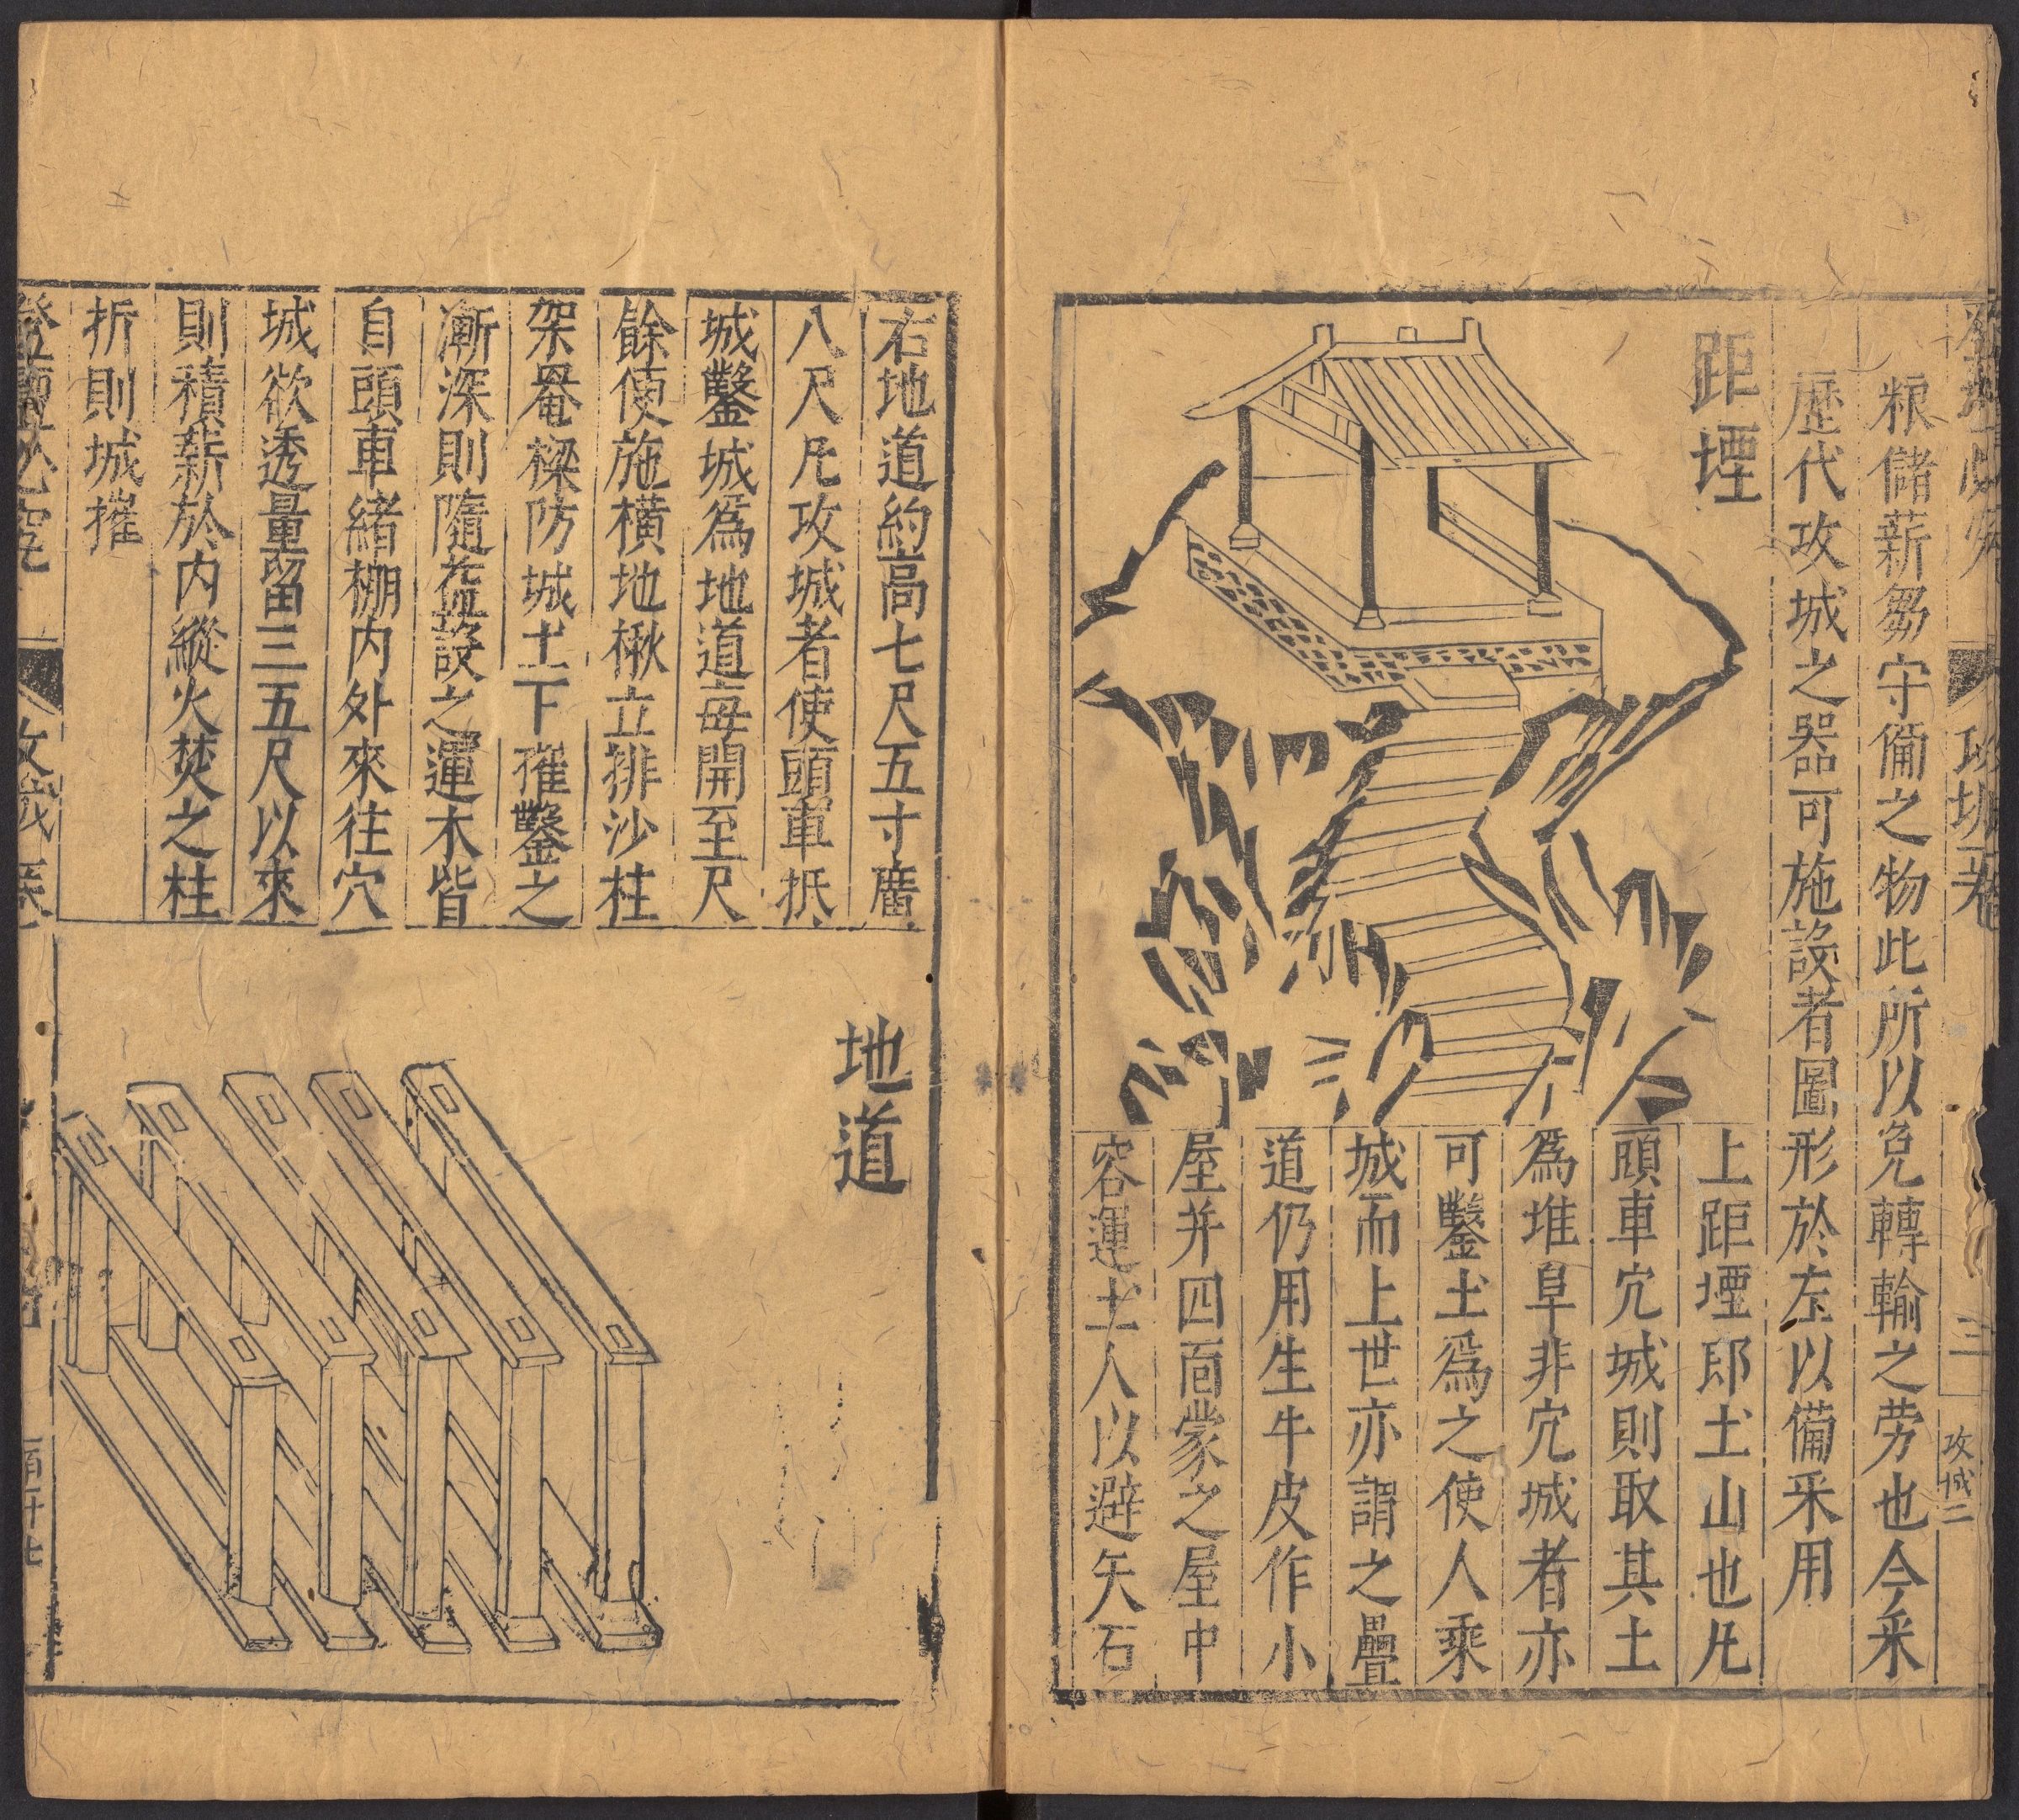 粮儲薪芻守僃之物此所以免轉輸之劳也今采
歷代攻城之器可施設者圖形於左以備采用
距堙
上距堙即土山也凡
頭車穴城則取其土
爲堆阜非穴城者亦
可鑿土爲之使人乘
城而上世亦謂之疊
道仍用生牛皮作小
屋并四面蒙之屋中
容運土人以避矢石
攻城二
三
右地道約高七尺五寸廣
八尺凡攻城者使頭車抵
城鑿城爲地道每開至尺
餘便施橫地栿立排沙柱
架罨樑防城土下摧鑿之
漸深則隨益設之運木皆
自頭車緒棚内外來往穴
城欲透量留三五尺以來
則積薪於内縱火焚之柱
折則城摧
地道